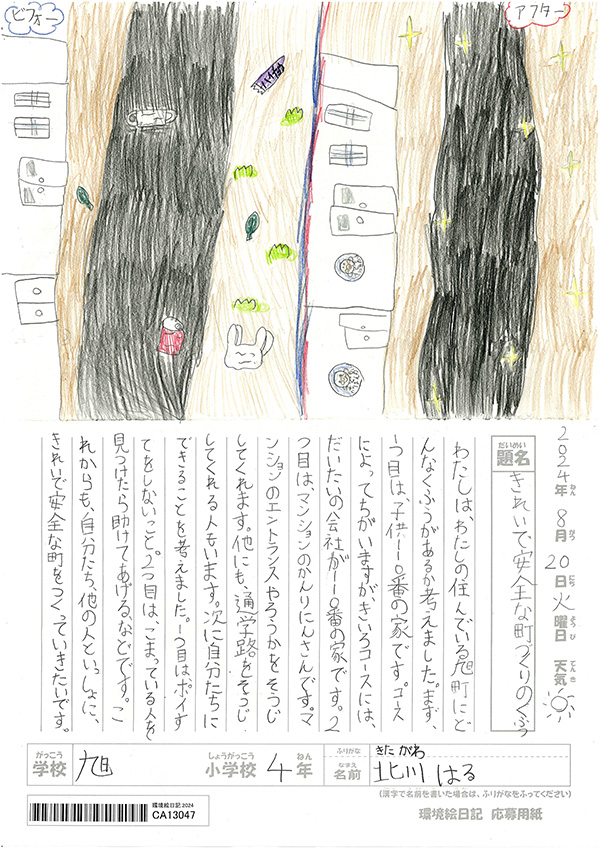 ビフォー
アフター
バイオ
2024年 8月 20日 火曜日 天気
ねん がつ にち ようび てんき
だいめい
題名 きれいで安全な町づくりのくふう
わたしは、わたしの住んでいる旭町にど
んなくふうがあるか考えました。まず、
1つ目は、子供110番の家です。コース
によってちがいますが、きいろコースには、
だいたいの会社が110番の家です。2
つ目は、マンションのかんりにんさんです。マ
ンションのエントランスやろうかをそうじ
してくれます。他にも、通学路をそうじ
してくれる人もいます。次に自分たちに
できることを考えました。1つ目はポイす
てをしないこと。2つ目は、こまっている人を
見つけたら助けてあげる、などです。こ
れからも、自分たち、他の人といっしょに、
きれいで安全な町をつくっていきたいです。
がっこう
学校 旭
しょうがっこう ねん
小学校 4年
ふりがな きたがわ
なまえ
名前 北川 はる
(漢字で名前を書いた場合は、ふりがなをふってください)
環境絵日記2024
CA13047
環境絵日記 応募用紙